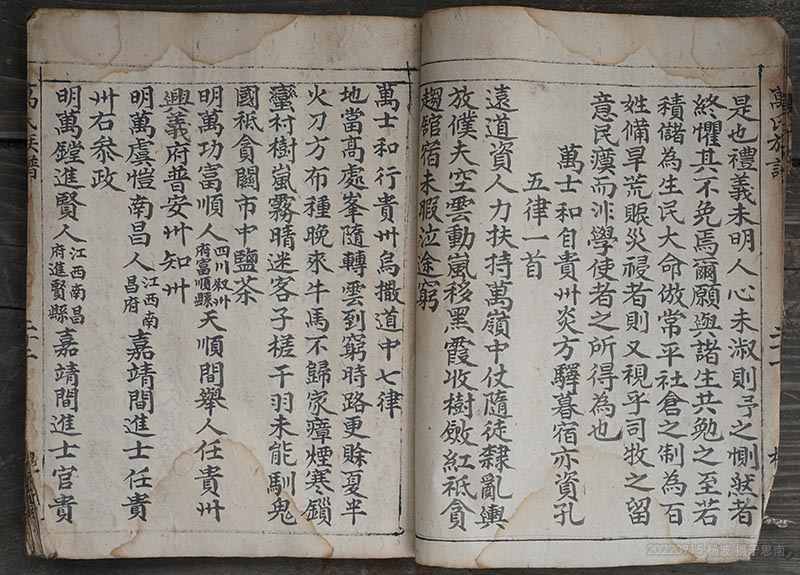 是也禮義未明人心未淑則予之惻然者
終懼其不免焉爾願與諸生共勉之至若
積儲為生民大命倣常平社倉之制為百
姓備旱荒賑災祲者則又視乎司牧之留
意民瘼而非學使者之所得為也
萬士和自貴州炎方驛暮宿亦資孔
五律一首
遠道資人力扶持萬嶺中仗隨徒隸亂輿
放僕夫空雲動嵐移黑霞收樹斂紅祇貪
趨館宿未暇泣途窮
萬士和行貴州烏撒道中七律
地當高處峯隨轉雲到窮時路更賒夏半
火刀方布種晚來牛馬不歸家瘴煙寒鎖
蠻村樹嵐霧晴迷客子槎干羽未能馴鬼
國祇貪闤市中鹽茶
明萬功富順人四川叙州府富順縣天順間舉人任貴州
興義府普安州知州
明萬虞愷南昌人江西南昌府嘉靖間進士任貴
州右叅政
明萬鏜進賢人江西南昌府進賢縣嘉靖間進士官貴
萬氏族譜
20220915 杨波 摄于思南